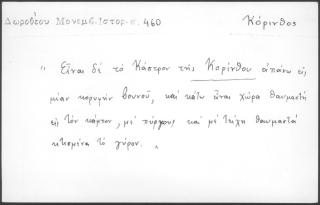 Δωροθέου Μονεμβ. Ἱστορ. σ. 460
Κόρινθος
„ Εἶναι δὲ τὸ Κάστρον τῆς Κορίνθου ἀπάνω εἰς
μίαν κορυφὴν βουνοῦ, καὶ κάτω εἶναι χώρα θαυμαστὴ
εἰς τὸν κάμπον, μὲ πύργους καὶ μὲ τείχη θαυμαστὰ
κτισμένα τὸ γύρον. „